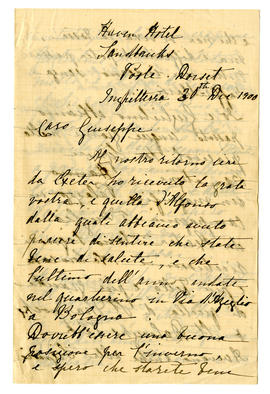 Haven Hotel
Sandbanks
Poole - Dorset
Inghilterra 30th Dec 1900
Caro Giuseppe
Al nostro ritorno ieri
da Exeter ho ricevuto la grata
vostra, e quella d'Alfonso
dalla quali abbiamo avuto
piacere di sentire che state
bene di salute, e che
l'ultimo dell'anno andate
nel quartierino in Via D'Azeglio
a Bologna.
Dovrebb'essere una buona
posizione per l'inverno
e spero che starete bene